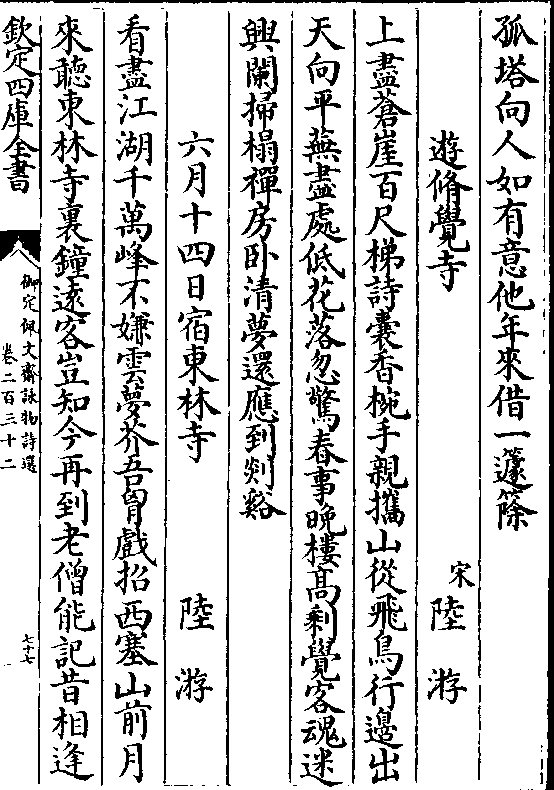 孤塔向人如有意他年來借一籧篨
遊脩覺寺
宋陸游
上盡蒼崖百尺梯詩囊香椀手親攜山從飛鳥行邊出
天向平蕪盡處低花落忽驚春事晚樓髙剩覺客魂迷
興闌掃榻禪房卧清夢還應到剡谿
六月十四日宿東林寺
陸游
看盡江湖千萬峰不嫌雲夢芥吾胷戲招西塞山前月
來聽東林寺裏鐘遠客豈知今再到老僧能記昔相逢
欽定四庫全書
御定佩文齋詠物詩選
卷二百三十二
七十七